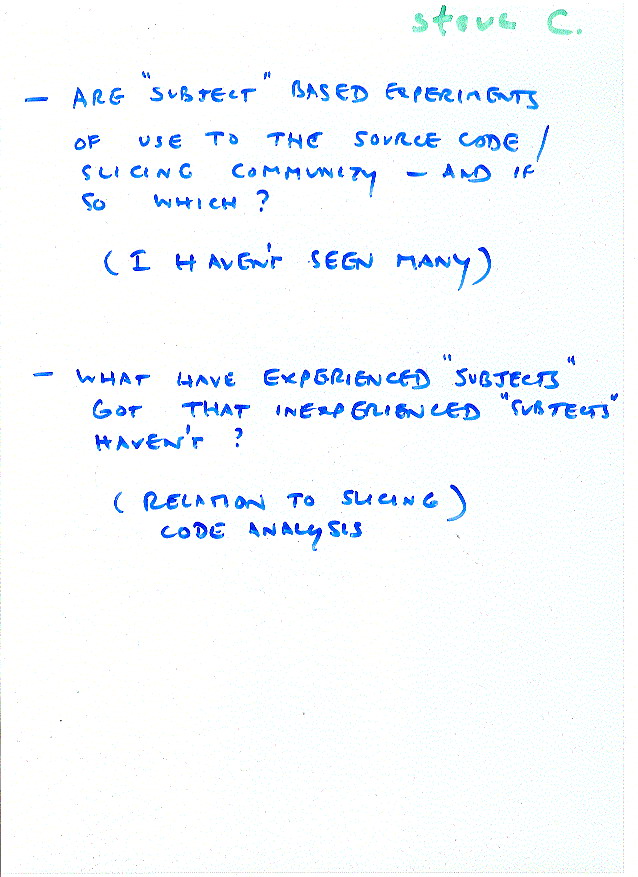 Steve C.
- ARE "SUBJECT" BASED EXPERIMENTS
OF USE TO THE SOURCE CODE /
SLICING COMMUNITY - AND IF
SO WHICH ?
(I HAVEN'T SEEN MANY)
- WHAT HAVE EXPERIENCED "SUBJECTS"
GOT THAT INEXPERIENCED "SUBJECTS"
HAVEN'T ?
( RELATION TO SLICING )
CODE ANALYSIS